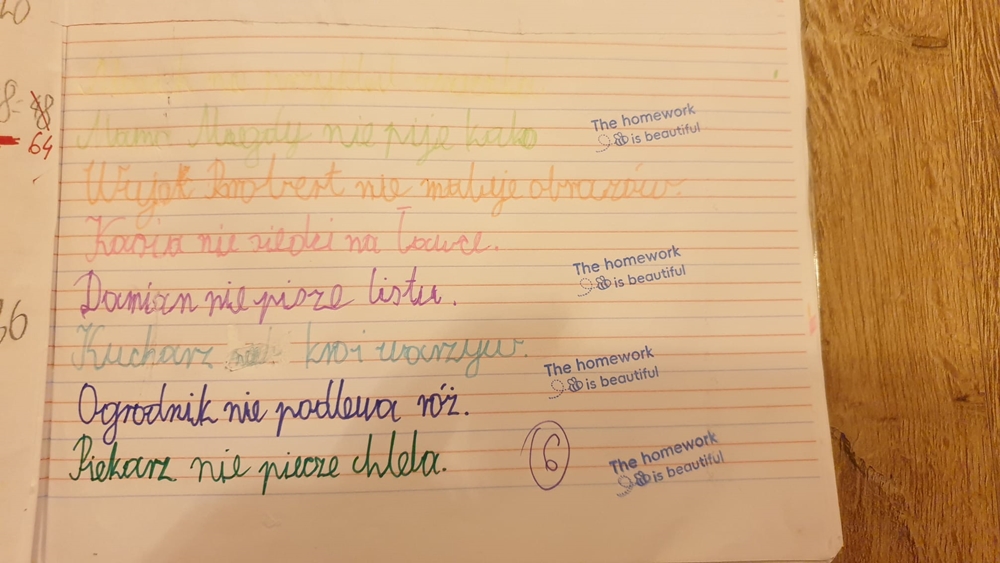 8 = 48
64
Mama Magdy nie pije kako
The homework
is beautiful
Wujek Robert nie maluje obrazów.
Kasia nie siedzi na ławce.
The homework
is beautiful
Damian nie pisze listu.
Kucharz nie kroi warzyw.
The homework
is beautiful
Ogrodnik nie podlewa róż.
Piekarz nie piecze chleba.
6
The homework
is beautiful